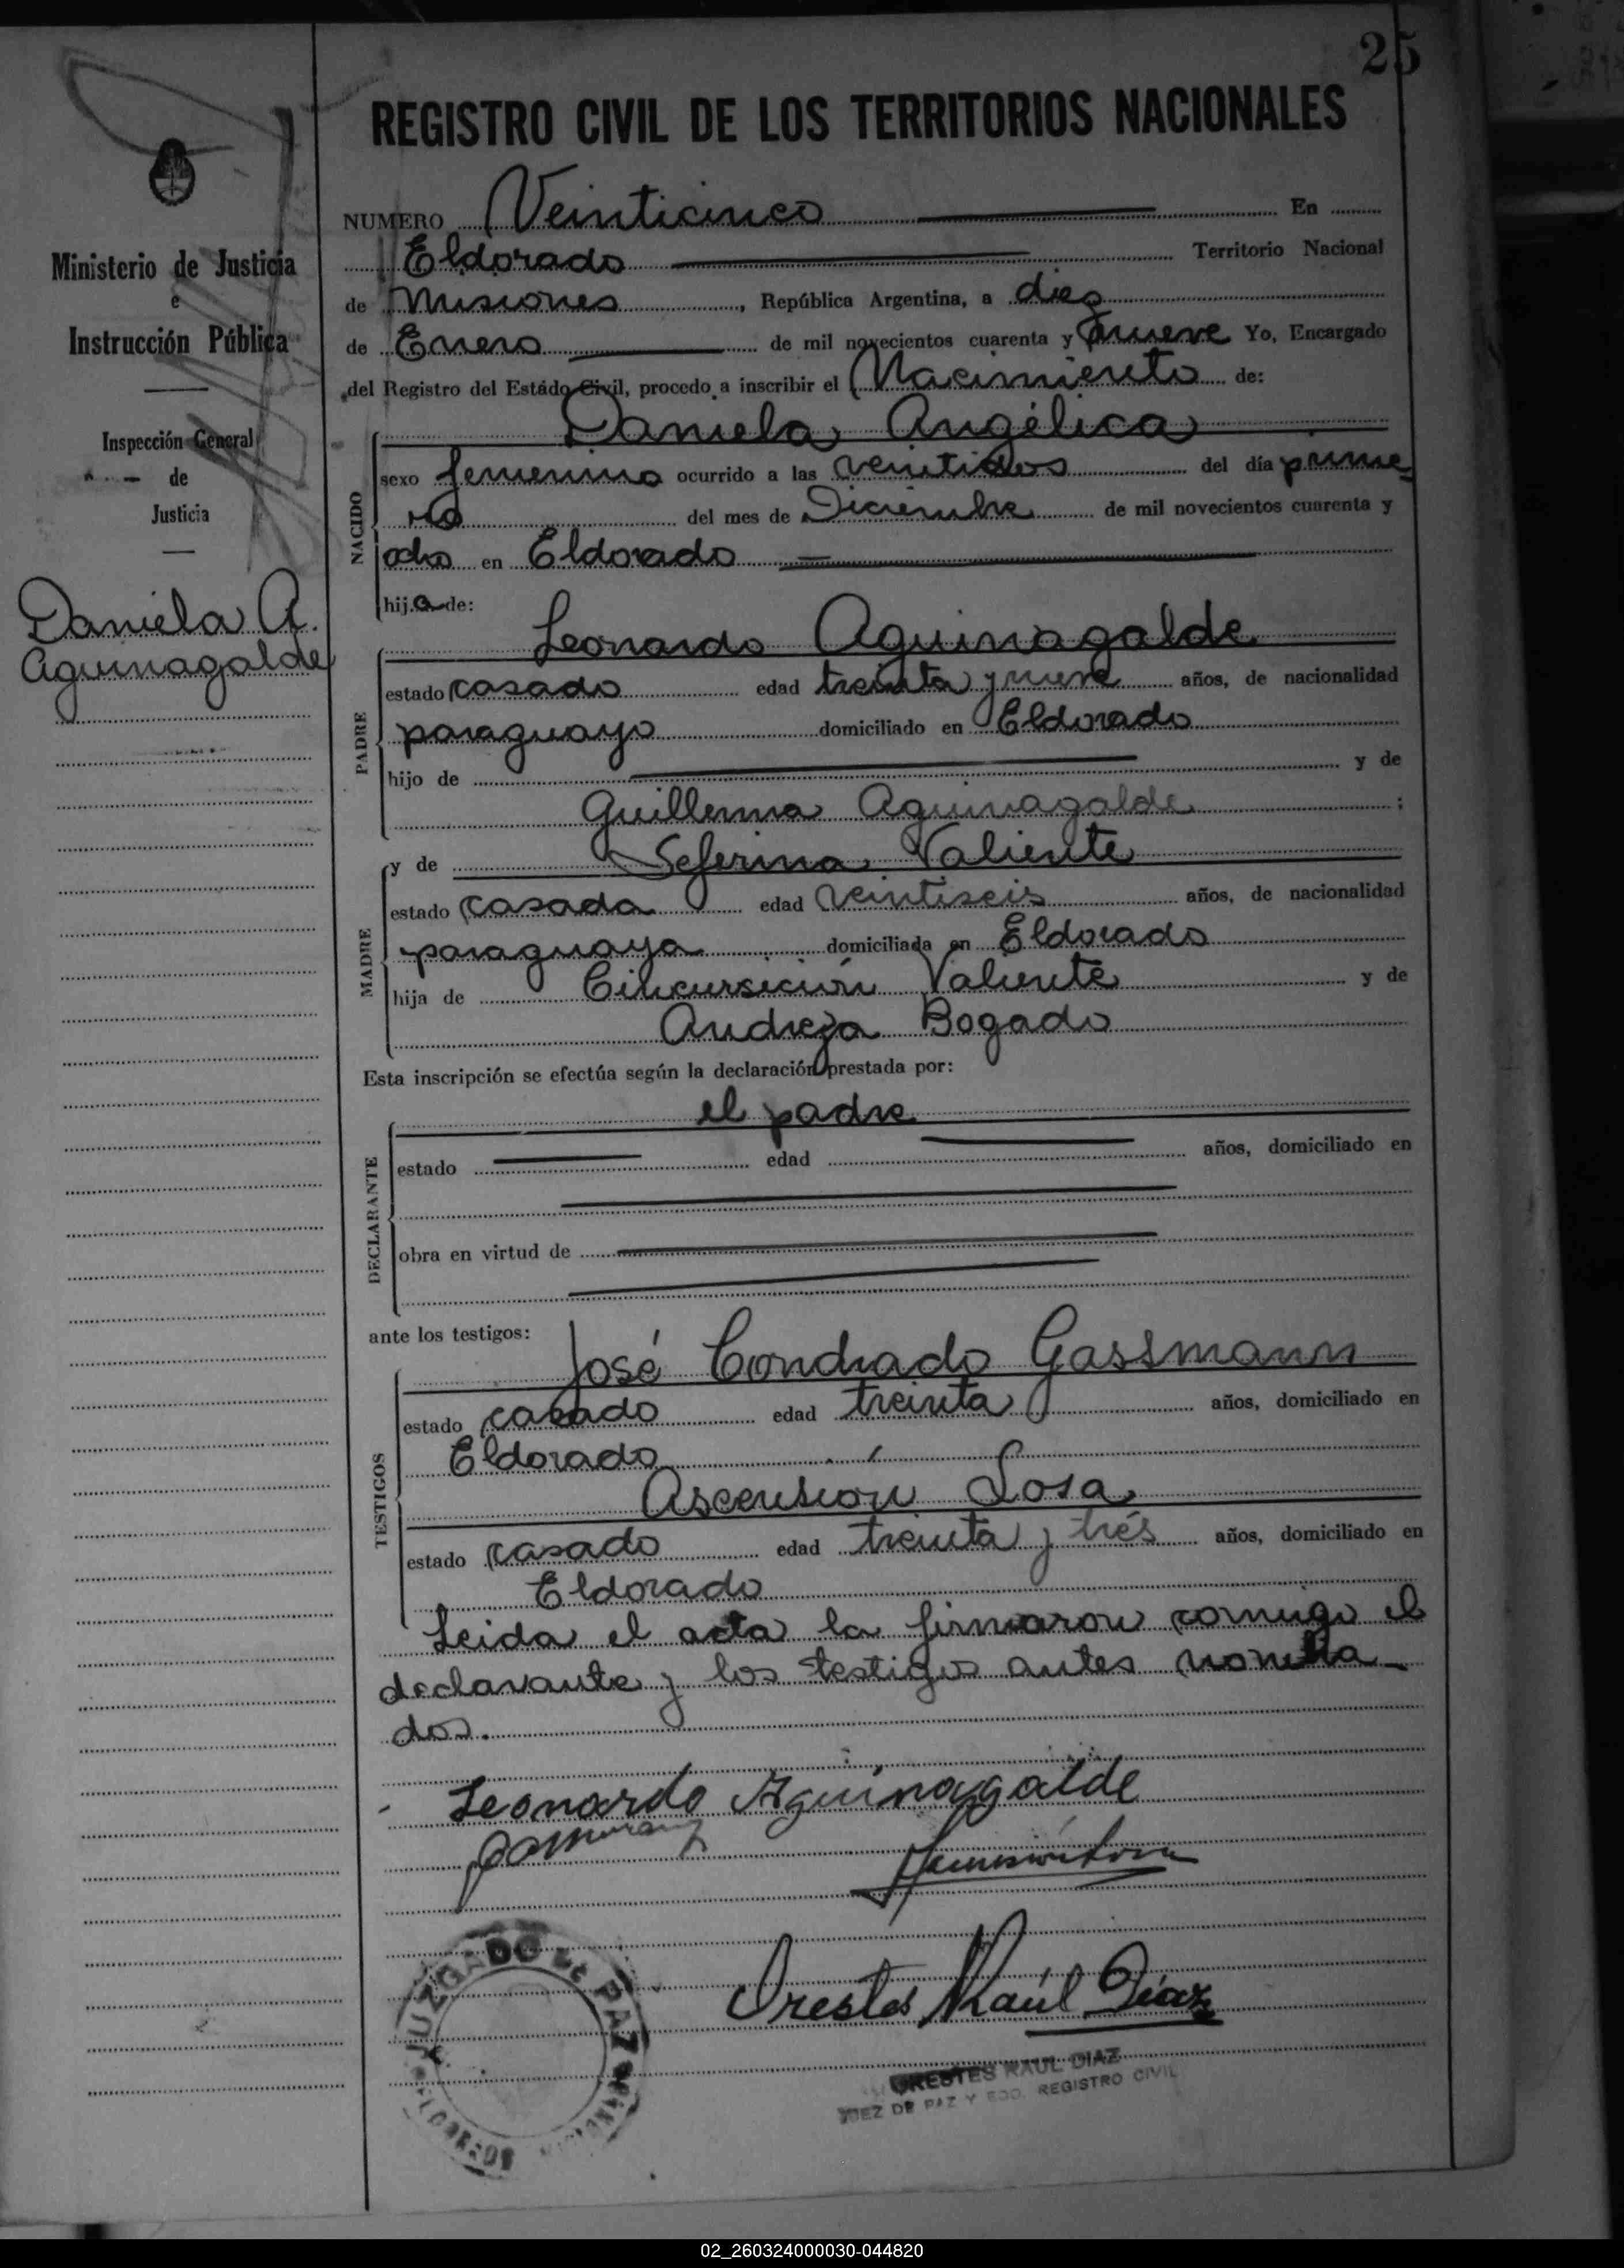 25
REGISTRO CIVIL DE LOS TERRITORIOS NACIONALES
Ministerio de Justicia
e
Instrucción Pública
Inspección General
de
Justicia
Daniela A.
Aguinagalde
NUMERO Veinticinco En
Eldorado Territorio Nacional
de Misiones, República Argentina, a diez
de Enero de mil novecientos cuarenta y nueve Yo, Encargado
del Registro del Estado Civil, procedo a inscribir el Nacimiento de:
NACIDO
Daniela Angélica
sexo femenino ocurrido a las veintidos del día prime
ro del mes de Diciembre de mil novecientos cuarenta y
ocho en Eldorado
hija de:
PADRE
Leonardo Aguinagalde
estado casado edad treinta y nueve años, de nacionalidad
paraguayo domiciliado en Eldorado
hijo de y de
Guillerma Aguinagalde ;
MADRE
y de Seferina Valiente
estado casada edad veintiseis años, de nacionalidad
paraguaya domiciliada en Eldorado
hija de Valiente y de
Andreza Bogado
Esta inscripción se efectúa según la declaración prestada por:
DECLARANTE
el padre
estado edad años, domiciliado en
obra en virtud de
ante los testigos:
TESTIGOS
José Condrado Gassmann
estado casado edad treinta años, domiciliado en
Eldorado
Ascensión Sosa
estado casado edad treinta y trés años, domiciliado en
Eldorado
Leida el acta la firmaron comigo el
declarante y los testigos antes nombra-
dos.
Leonardo Aguinagalde
Orestes Raúl Díaz
JUZGADO de PAZ
ELDORADO
ORESTES RAUL DIAZ
JUEZ DE PAZ Y EDO. REGISTRO CIVIL
02_260324000030-044820